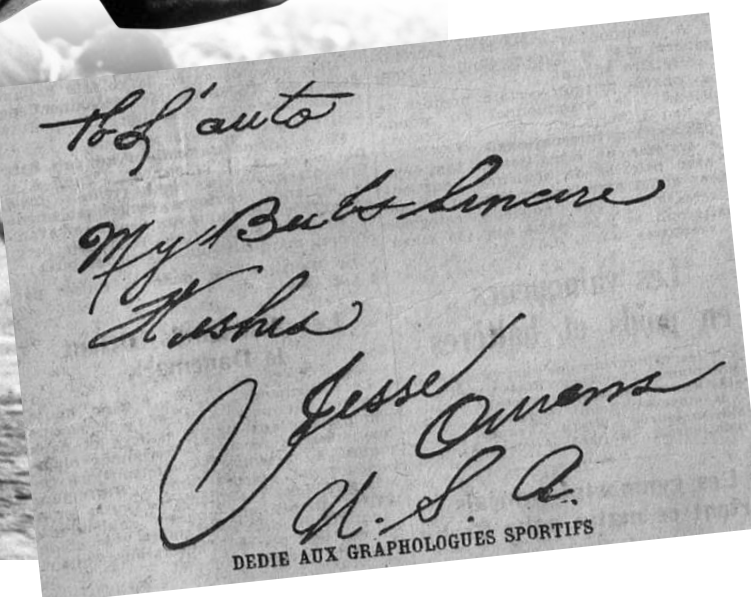 To L'auto
My Bests Sincere
Wishes
Jesse
Owens
U.S.A.
DEDIE AUX GRAPHOLOGUES SPORTIFS